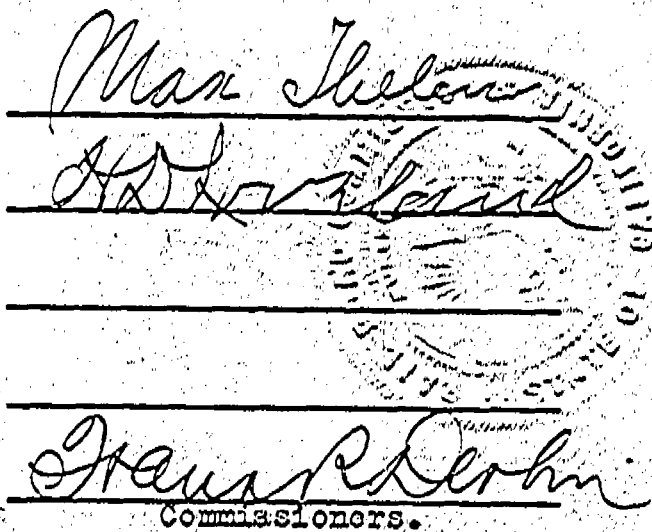 Max Thelen
H D Loveland
Frank R Devlin
Commissioners.